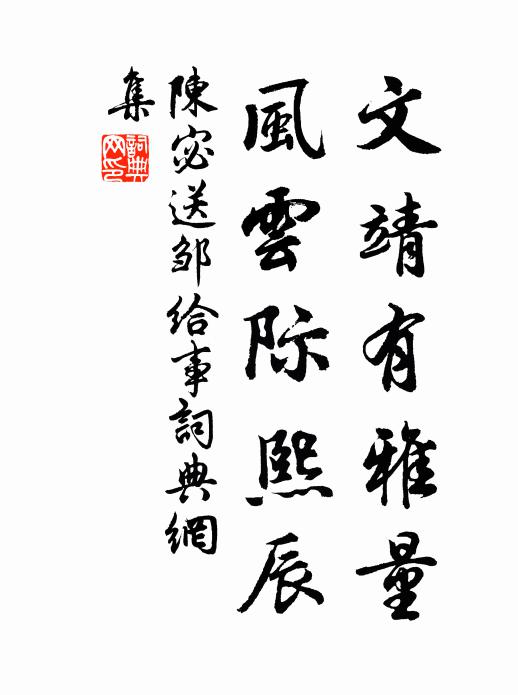 文靖有雅量
風雲际熙辰
陳宓送邹给事詞典網
集
詞典
网印